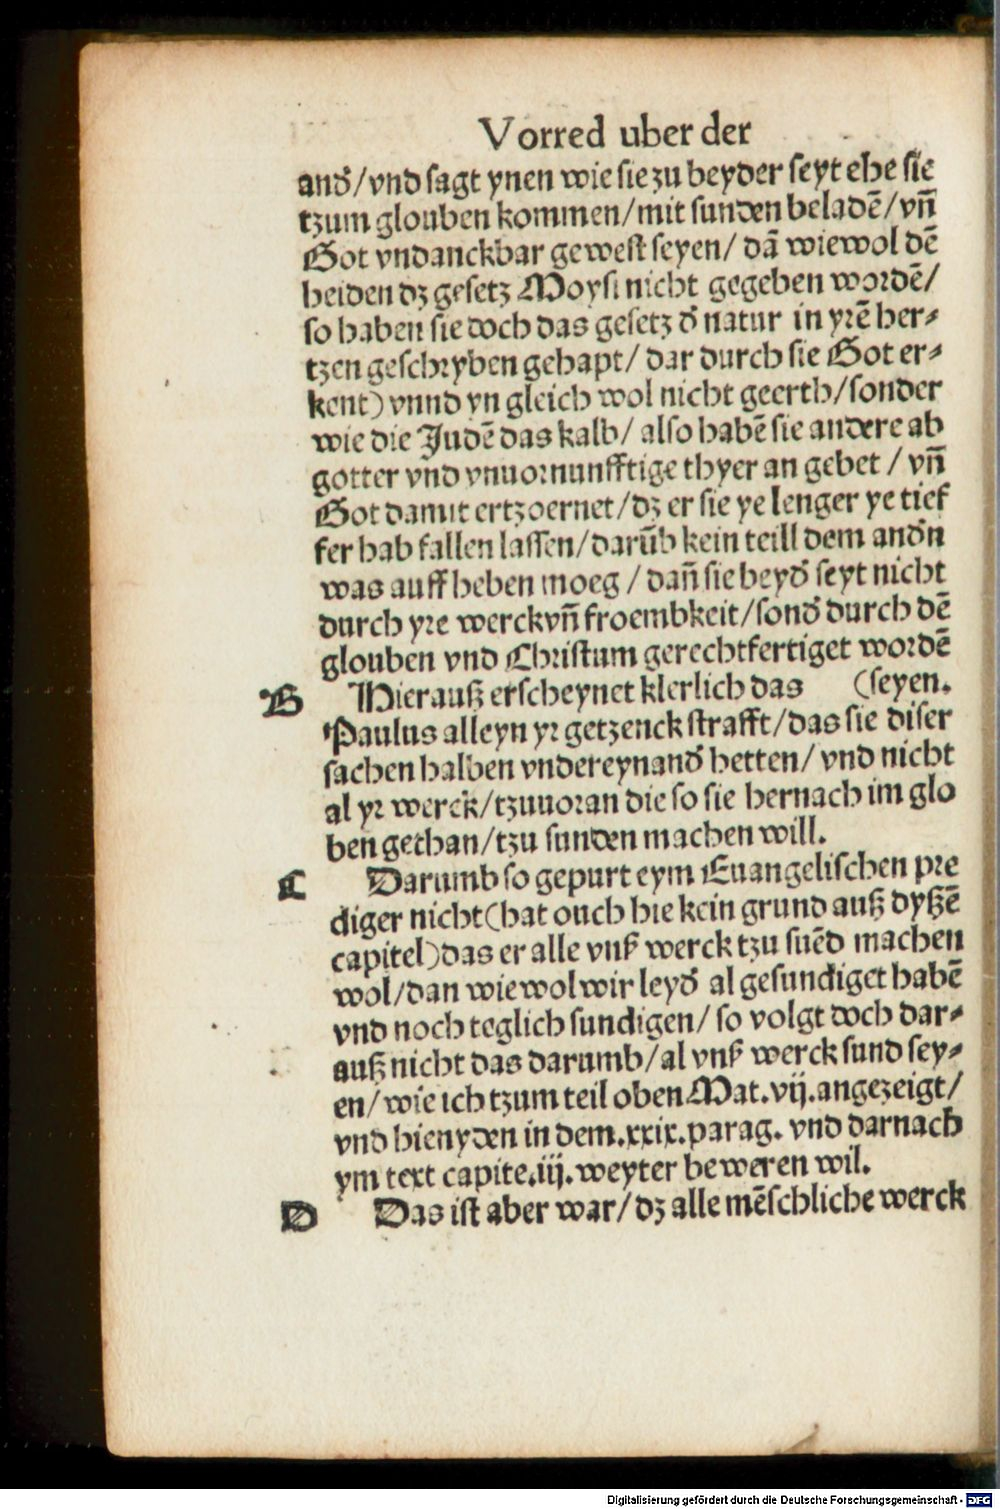 Vorred uber der
and᷑/vnd sagt ynen wie sie zu beyder seyt ehe sie
tzum glouben kommen/mit sunden beladẽ/vñ
Got vndanckbar gewest seyen/ dã wiewol dẽ
heiden dz gesetz Moysi nicht gegeben wordẽ/
so haben sie doch das gesetz d᷑ natur in yrẽ her⸗
tzen geschryben gehapt/ dar durch sie Got er⸗
kent) vnnd yn gleich wol nicht geerth/sonder
wie die Judẽ das kalb/ also habẽ sie andere ab
gotter vnd vnuornunfftige thyer an gebet / vñ
Got damit ertzoernet/dz er sie ye lenger ye tief
fer hab fallen lassen/darũb kein teill dem and᷑n
was auff heben moeg / dañ sie beyd᷑ seyt nicht
durch yre werckvñ froembkeit/sond᷑ durch dẽ
glouben vnd Christum gerechtfertiget wordẽ
B Hierauß erscheynet klerlich das (seyen.
Paulus alleyn yr getzenck strafft/das sie diser
sachen halben vndereynand᷑ hetten/ vnd nicht
al yr werck/tzuuoran die so sie hernach im glo
ben gethan/tzu sunden machen will.
C Darumb so gepurt eym Euangelischen pre
diger nicht(hat ouch hie kein grund auß dyßẽ
capitel)das er alle vnß werck tzu suẽd machen
wol/dan wiewol wir leyd᷑ al gesundiget habẽ
vnd noch teglich sundigen/ so volgt doch dar⸗
auß nicht das darumb/al vnß werck sund sey⸗
en/ wie ich tzum teil oben Mat.vij.angezeigt/
vnd hienyden in dem.xxix.parag. vnd darnach
ym text capite.iij.weyter beweren wil.
D Das ist aber war/ dz alle mẽschliche werck
Digitalisierung gefördert durch die Deutsche Forschungsgemeinschaft - DFG